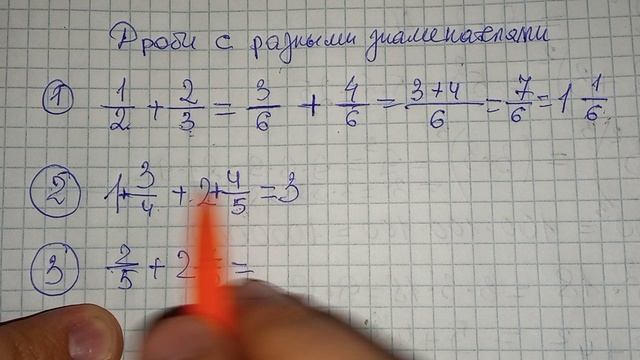 Дроби с разными знаменателями
① 1/2 + 2/3 = 3/6 + 4/6 = 3+4/6 = 7/6 = 1 1/6
② 1+3/4 + 2+4/5 = 3
③ 2/5 + 2 =